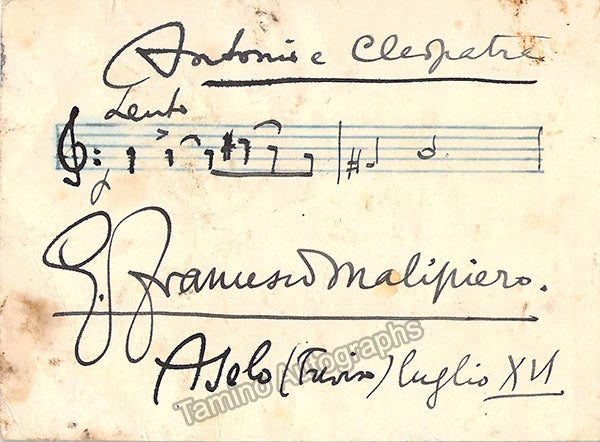 Antonio e Cleopatra
Lento
G. Francesco Malipiero.
Asolo (Treviso) luglio XVI
Tamino Autographs